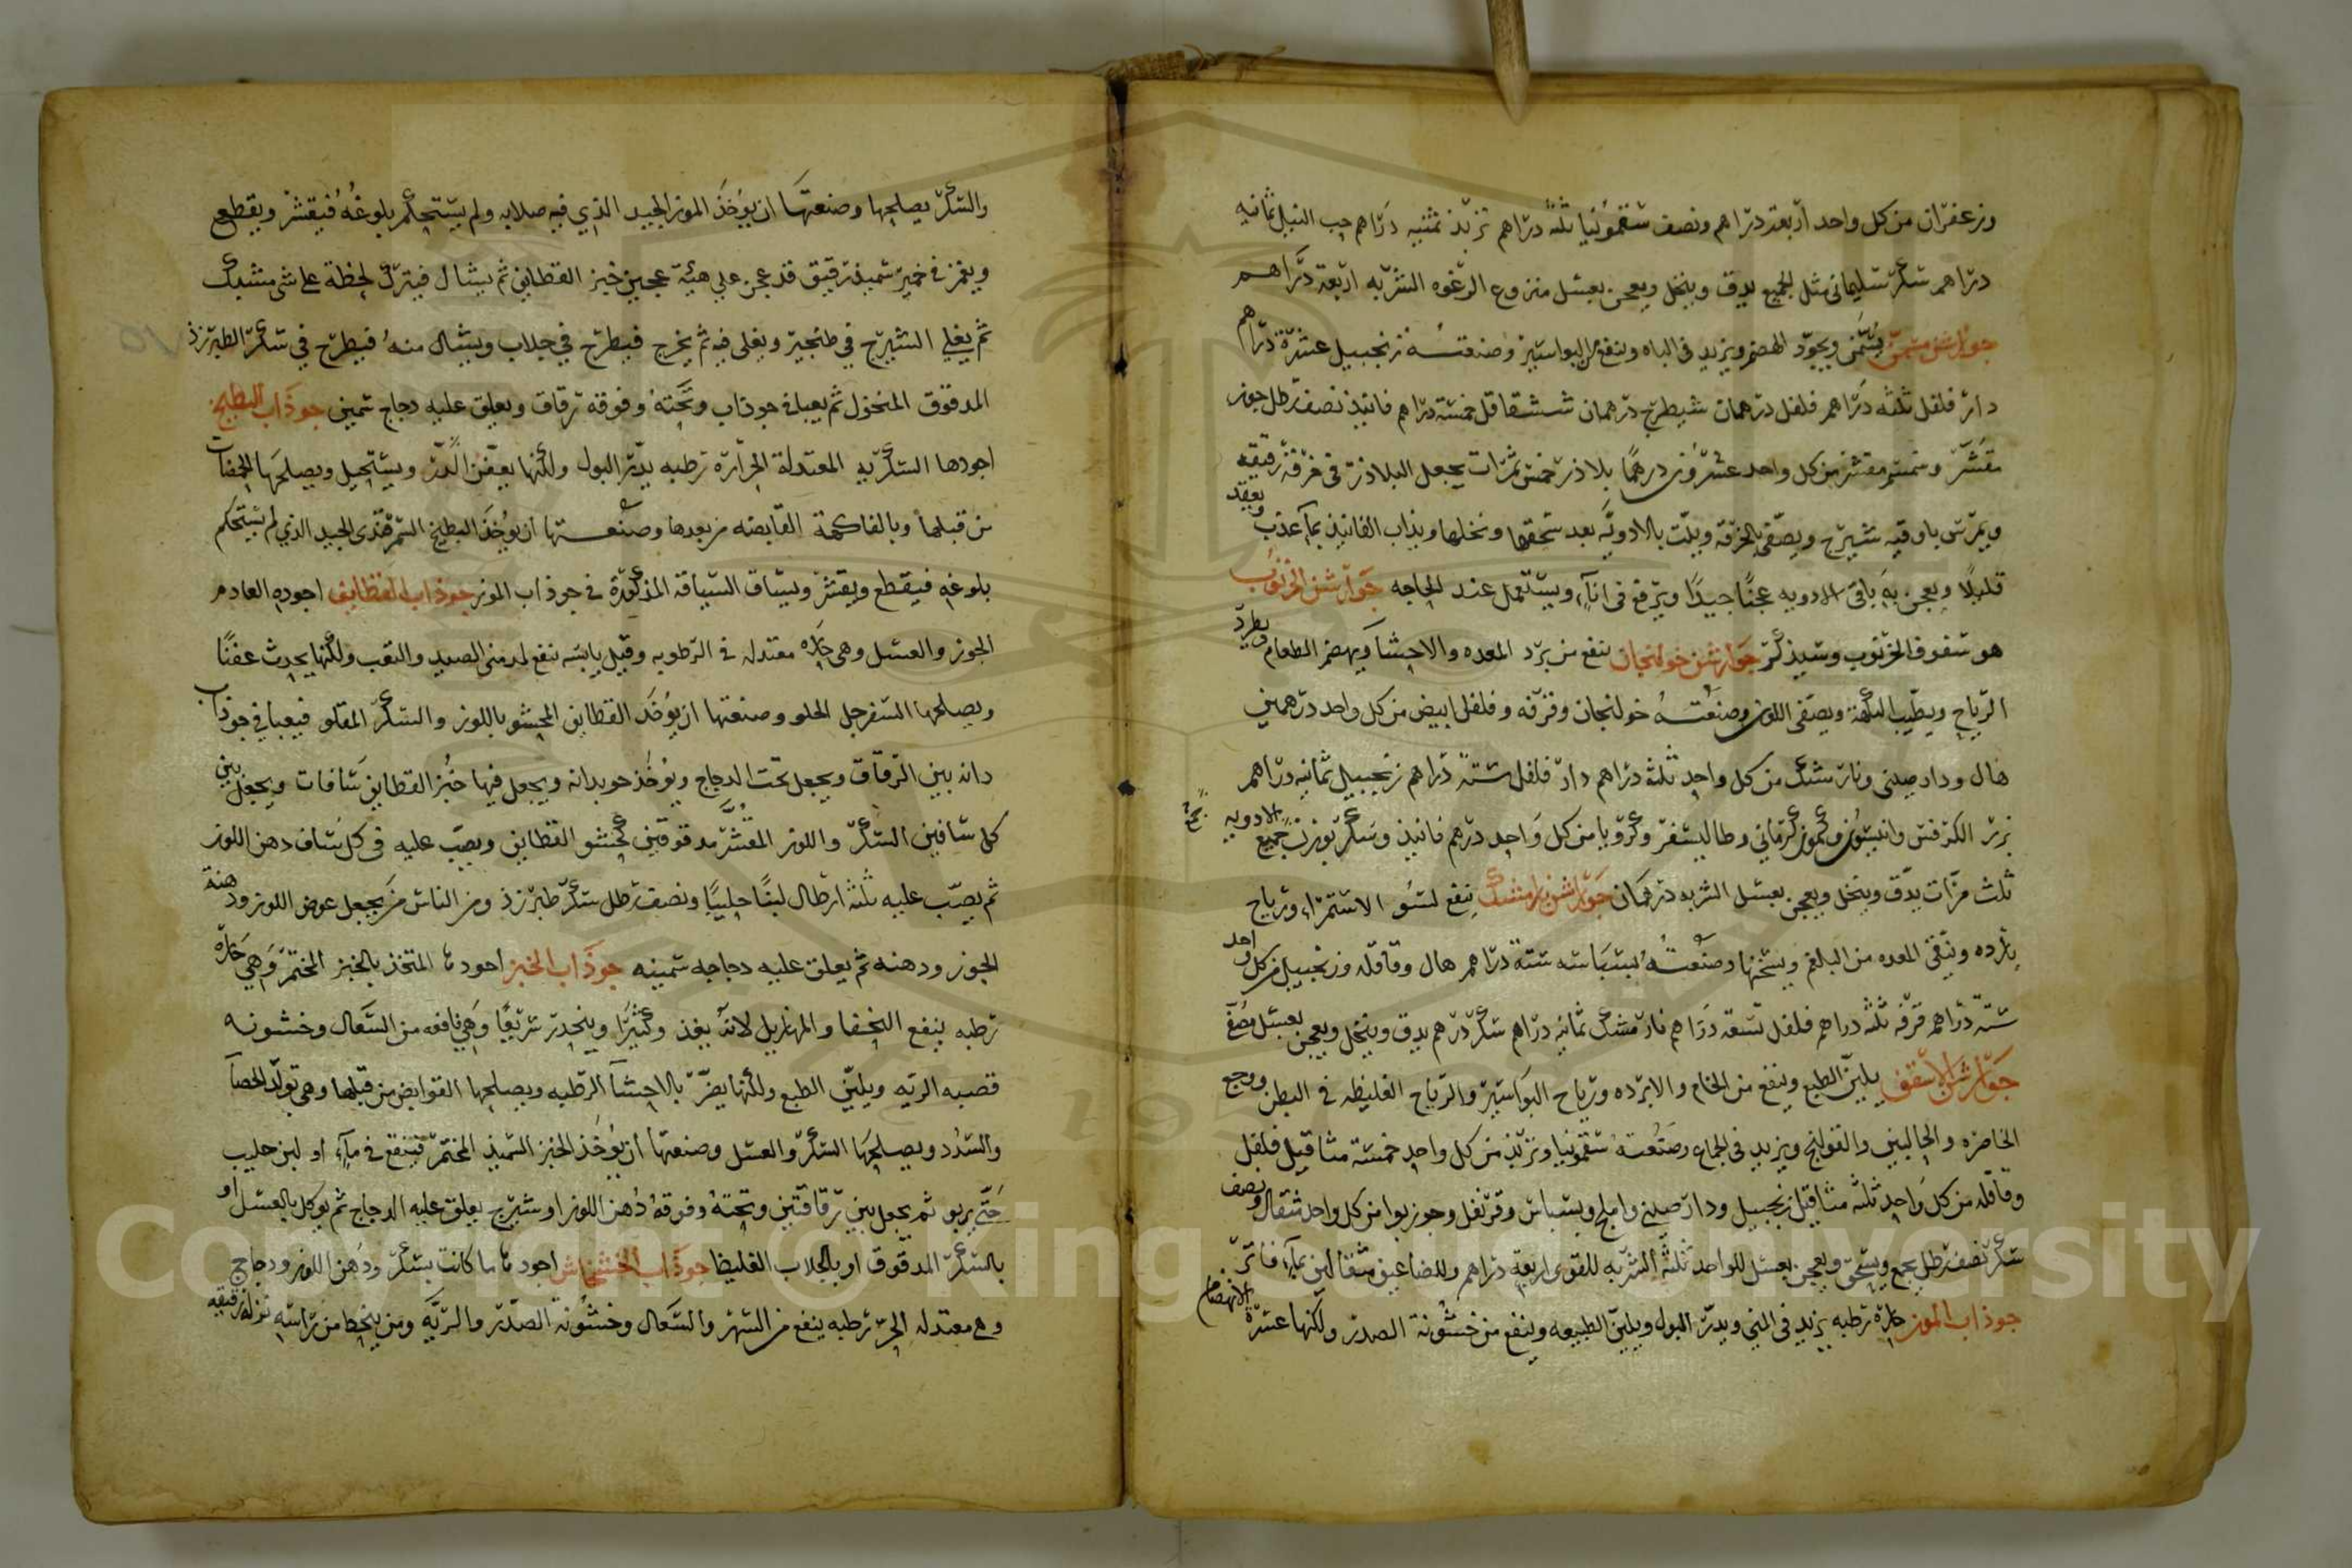 وزعفران من كل واحد اربعة دراهم ونصف سقمونيا ثلثة دراهم تربذ ثمنيه دراهم حب النيل ثمانيه
دراهم سكر سليمانى مثل الجميع يدق وينخل ويعجن بعسل منزوع الرغوه الشربه اربعة دراهم
جوارشن مسمن يسمن ويجود الهضم ويزيد فى الباه وينفع من البواسير وصنعته زنجبيل عشرة دراهم
دار فلفل ثلثه دراهم فلفل درهمان شيطرج درهمان شقاقل خمسة دراهم فانيذ نصف رطل جوز
مقشر وسمسم مقشر من كل واحد عشرون درهما بلاذر خمس ثمرات يجعل البلاذر فى خرقة رقيقه
ويمرس باوقيه شيرج ويصفى بالخرقة ويلت بالادويه بعد سحقها ونخلها ويذاب الفانيذ بماء عذب ويعقد
قليلا ويعجن به باقى الادويه عجنا جيدا ويرفع فى اناء ويستعمل عند الحاجه جوارشن الخرنوب
هو سفوف الخرنوب وسيذكر جوارشن خولنجان ينفع من برد المعده والاحشا ويهضم الطعام ويطرد
الرياح ويطيب النكهة ويصفى اللون وصنعته خولنجان وقرفه وفلفل ابيض من كل واحد درهمين
هال ودارصينى ونارمشك من كل واحد ثلثة دراهم دار فلفل ستة دراهم زنجبيل ثمانيه دراهم
بزر الكرفس وانيسون وكمون كرمانى وطاليسفر وكرويا من كل واحد درهم فانيذ وسكر بوزن جميع الادويه
ثلث مرات يدق وينخل ويعجن بعسل الشربه درهمان جوارشن نارمشك ينفع لسوء الاستمراء ورياح
بارده وينقى المعده من البلغم ويسخنها وصنعته بسباسه ستة دراهم هال وقاقله وزنجبيل من كل واحد
ستة دراهم قرفه ثلثه دراهم فلفل تسعة دراهم نارمشك ثمانيه دراهم سكر درهم يدق وينخل ويعجن بعسل مصفى
جوارشن الاسقف يلين الطبع وينفع من الخام والابرده ورياح البواسير والرياح الغليظه فى البطن ووجع
الخاصره والحالبين والقولنج ويزيد فى الجماع وصنعته سقمونيا وتربذ من كل واحد خمسة مثاقيل فلفل
وقاقله من كل واحد ثلثه مثاقيل زنجبيل ودارصينى واملج وبسباس وقرنفل وجوز بوا من كل واحد مثقال ونصف
سكر نصف رطل يجمع ويسحق ويعجن بعسل للواحد ثلثة الشربه للقوى اربعة دراهم وللضاعيف مثقالين بماء فاتر
جوذاب الموز حارة رطبه يزيد فى المنى ويدر البول ويلين الطبيعه وينفع من خشونة الصدر ولكنها عسرة الانهضام
والسكر يصلحها وصنعتها ان يوخذ الموز الجيد الذي فيه صلابه ولم يستحكم بلوغه فيقشر ويقطع
ويغمز فى خمير سميذ رقيق قد عجن على هيئة عجين خبز القطايف ثم يشال فيترك لحظة على شى مشبك
ثم يغلي الشيرج في طنجير ويغلى فيه ثم يخرج فيطرح في جلاب ويشال منه فيطرح في سكر الطبرزذ
المدقوق المنخول ثم يعبا فى جوذاب وتحته وفوقه رقاق ويعلق عليه دجاج سمين جوذاب البطيخ
اجودها السكريه المعتدلة الحراره رطبه يدر البول ولكنها يعفن الدم ويستحيل ويصلحها المجففات
من قبلها وبالفاكهة القابضه من بعدها وصنعتها ان يوخذ البطيخ السمرقندى الجيد الذي لم يستحكم
بلوغه فيقطع ويقشر ويساق السياقه المذكورة فى جوذاب الموز جوذاب القطايف اجوده العادم
الجوز والعسل وهى حاره معتدله فى الرطوبه وقيل يابسه ينفع لمدمنى الصيد والتعب ولكنها يحدث عفنا
ويصلحها السفرجل الحلو وصنعتها ان يوخذ القطايف المحشو باللوز والسكر المقلو فيعبا في جوذاب
دانه بين الرقاق ويجعل تحت الدجاج ويوخذ جوبدانه ويجعل فيها خبز القطايف سافات ويجعل بين
كل سافين السكر واللوز المقشر مدقوقين كحشو القطايف ويصب عليه فى كل ساف دهن اللوز
ثم يصب عليه ثلثة ارطال لبنا حليبا ونصف رطل سكر طبرزذ ومن الناس من يجعل عوض اللوز ودهنه
الجوز ودهنه ثم يعلق عليه دجاجه سمينه جوذاب الخبز اجودها المتخذ بالخبز المختمر وهي حاره
رطبه ينفع النخفا والمهازيل لانه يغذ وكثيرا وينحدر سريعا وهي نافعه من السعال وخشونه
قصبه الريه ويلين الطبع ولكنها يضر بالاحشآ الرطبه ويصلحها القوابض من قبلها وهي تولد الحصآ
والسدد ويصلحها السكر والعسل وصنعتها ان يوخذ الخبز السميذ المختمر فينقع فى ماء او لبن حليب
حتى يربو ثم يجعل بين رقاقتين وتحته وفوقه دهن اللوز او شيرج يعلق عليه الدجاج ثم يوكل بالعسل او
بالسكر المدقوق او بالجلاب الغليظ جوذاب الخشخاش اجودها ما كانت بسكر ودهن اللوز ودجاج
وهى معتدله الحر رطبه ينفع من السهر والسعال وخشونة الصدر والريه ومن ينحط من راسه نزله رقيقه
Copyright © King Saud University